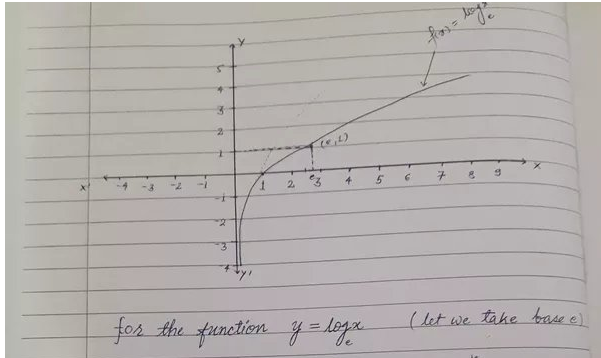 f(x) = logₑx
Y
5
4
3
2
1
(e,1)
X' -4 -3 -2 -1 1 2 e 3 4 5 6 7 8 9 X
-1
-2
-3
-4
Y'
for the function y = logₑx (let we take base e)